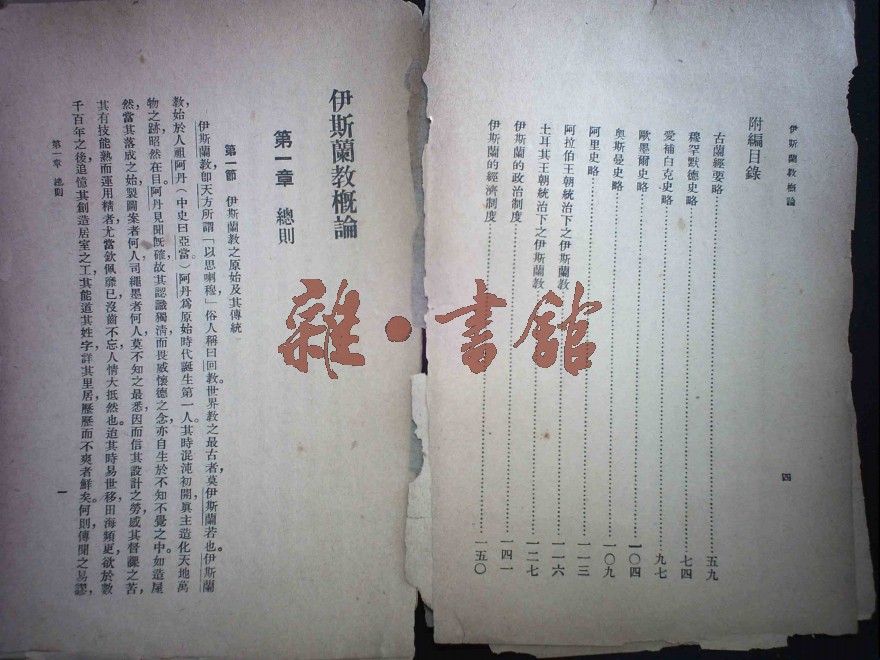 伊斯蘭教概論
附編目錄
古蘭經要略 五九
穆罕默德史略 七四
愛補白克史略 九七
歐墨爾史略 一〇四
奥斯曼史略 一〇九
阿里史略 一一三
阿拉伯王朝統治下之伊斯蘭教 一一六
土耳其王朝統治下之伊斯蘭教 一二七
伊斯蘭的政治制度 一四一
伊斯蘭的經濟制度 一五〇
四
雜·書舘
伊斯蘭教概論
第一章 總則
第一節 伊斯蘭教之原始及其傳統
伊斯蘭教卽天方所謂「以思喇穆」俗人稱曰回教。世界教之最古者莫伊斯蘭若也。伊斯蘭
教,始於人祖阿丹(中史曰亞當)阿丹爲原始時代誕生第一人其時混沌初開,眞主造化天地萬
物之跡,昭然在目,阿丹見聞既確,故其認識獨清,而畏威懷德之念,亦自生於不知不覺之中。如造屋
然,當其落成之始,製圖案者何人,司繩墨者何人,莫不知之最悉,因而信其設計之勞,感其督課之苦,
其有技能熟而運用精者,尤當欽佩靡已,沒齒不忘,人情大抵然也。迨其時易世移,田海頻更,欲於數
千百年之後,追憶其創造居室之工,其能道其姓字,詳其里居,歷歷而不爽者鮮矣。何則,傳聞之易謬,
第一章 總則
一